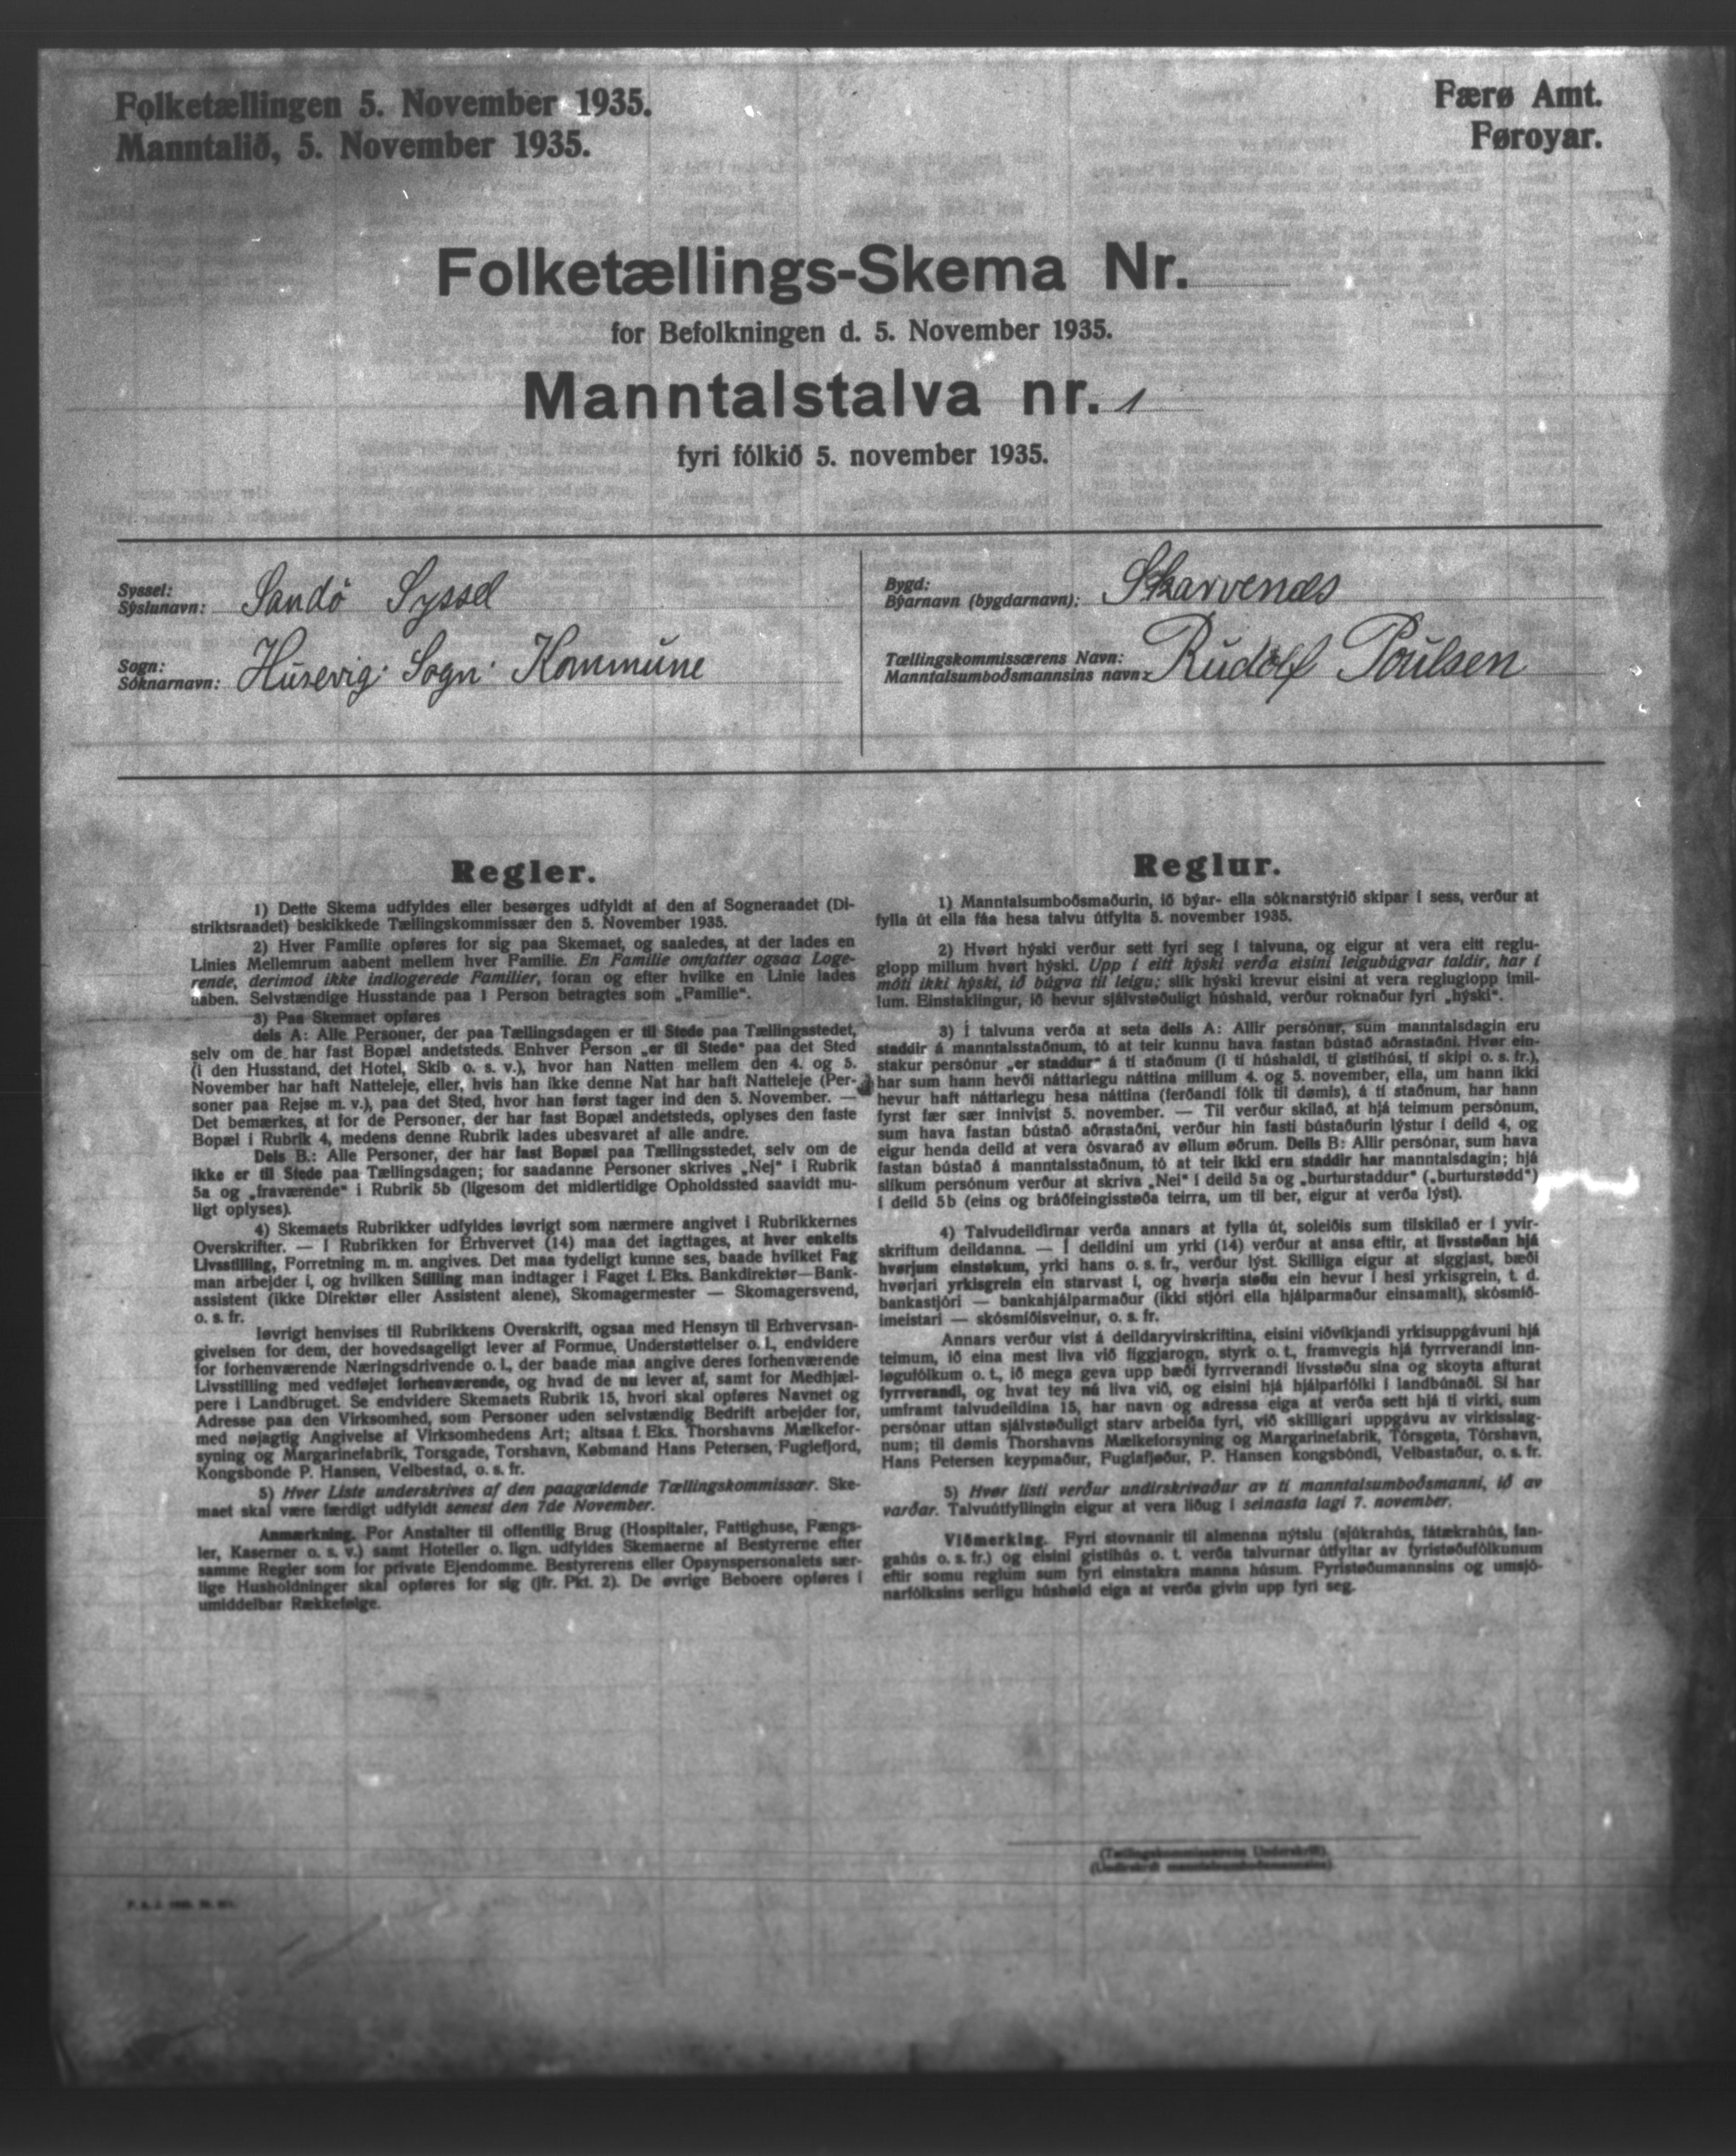 Folketællingen 5. November 1935.
Manntalið, 5. November 1935.
Færø Amt.
Føroyar.
Folketællings-Skema Nr.
for Befolkningen d. 5. November 1935.
Manntalstalva nr. 1
fyri fólkið 5. november 1935.
Syssel:
Sýslunavn: Sandö Syssel
Sogn:
Sóknarnavn: Husevig Sogn Kommune
Bygd:
Býarnavn (bygdarnavn): Skarvenæs
Tællingskommissærens Navn:
Manntalsumboðsmannsins navn: Rudolf Poulsen
Regler.
1) Dette Skema udfyldes eller besørges udfyldt af den af Sogneraadet (Di-
striktsraadet) beskikkede Tællingskommissær den 5. November 1935.
2) Hver Familie opføres for sig paa Skemaet, og saaledes, at der lades en
Linies Mellemrum aabent mellem hver Familie. En Familie omfatter ogsaa Loge-
rende, derimod ikke indlogerede Familier, foran og efter hvilke en Linie lades
aaben. Selvstændige Husstande paa 1 Person betragtes som „Familie“.
3) Paa Skemaet opføres
dels A: Alle Personer, der paa Tællingsdagen er til Stede paa Tællingsstedet,
selv om de har fast Bopæl andetsteds. Enhver Person „er til Stede“ paa det Sted
(i den Husstand, det Hotel, Skib o. s. v.), hvor han Natten mellem den 4. og 5.
November har haft Natteleje, eller, hvis han ikke denne Nat har haft Natteleje (Per-
soner paa Rejse m. v.), paa det Sted, hvor han først tager ind den 5. November. —
Det bemærkes, at for de Personer, der har fast Bopæl andetsteds, oplyses den faste
Bopæl i Rubrik 4, medens denne Rubrik lades ubesvaret af alle andre.
Dels B.: Alle Personer, der har fast Bopæl paa Tællingsstedet, selv om de
ikke er til Stede paa Tællingsdagen; for saadanne Personer skrives „Nej“ i Rubrik
5a og „fraværende“ i Rubrik 5b (ligesom det midlertidige Opholdssted saavidt mu-
ligt oplyses).
4) Skemaets Rubrikker udfyldes iøvrigt som nærmere angivet i Rubrikkernes
Overskrifter. — I Rubrikken for Erhvervet (14) maa det iagttages, at hver enkelts
Livsstilling, Forretning m. m. angives. Det maa tydeligt kunne ses, baade hvilket Fag
man arbejder i, og hvilken Stilling man indtager i Faget f. Eks. Bankdirektør—Bank-
assistent (ikke Direktør eller Assistent alene), Skomagermester — Skomagersvend,
o. s. fr.
Iøvrigt henvises til Rubrikkens Overskrift, ogsaa med Hensyn til Erhvervsan-
givelsen for dem, der hovedsageligt lever af Formue, Understøttelser o. l., endvidere
for forhenværende Næringsdrivende o. l., der baade maa angive deres forhenværende
Livsstilling med vedføjet forhenværende, og hvad de nu lever af, samt for Medhjæl-
pere i Landbruget. Se endvidere Skemaets Rubrik 15, hvori skal opføres Navnet og
Adresse paa den Virksomhed, som Personer uden selvstændig Bedrift arbejder for,
med nøjagtig Angivelse af Virksomhedens Art; altsaa f. Eks. Thorshavns Mælkefor-
syning og Margarinefabrik, Torsgade, Torshavn, Købmand Hans Petersen, Fuglefjord,
Kongsbonde P. Hansen, Velbestad, o. s. fr.
5) Hver Liste underskrives af den paagældende Tællingskommissær. Ske-
maet skal være færdigt udfyldt senest den 7de November.
Anmærkning. For Anstalter til offentlig Brug (Hospitaler, Fattighuse, Fængs-
ler, Kaserner o. s. v.) samt Hoteller o. lign. udfyldes Skemaerne af Bestyrerne efter
samme Regler som for private Ejendomme. Bestyrerens eller Opsynspersonalets sær-
lige Husholdninger skal opføres for sig (jfr. Pkt. 2). De øvrige Beboere opføres i
umiddelbar Rækkefølge.
Reglur.
1) Manntalsumboðsmaðurin, ið býar- ella sóknarstýrið skipar í sess, verður at
fylla út ella fáa hesa talvu útfylta 5. november 1935.
2) Hvørt hýski verður sett fyri seg í talvuna, og eigur at vera eitt reglu-
glopp millum hvørt hýski. Upp í eitt hýski verða eisini leigubúgvar taldir, har í
móti ikki hýski, ið búgva til leigu; slík hýski krevur eisini at vera regluglopp imil-
lum. Einstaklingur, ið hevur sjálvstøðuligt húshald, verður roknaður fyri „hýski“.
3) Í talvuna verða at seta deils A: Allir persónar, sum manntalsdagin eru
staddir á manntalsstaðnum, tó at teir kunnu hava fastan bústað aðrastaðni. Hvør ein-
stakur persónur „er staddur“ á tí staðnum (í tí húshaldi, tí gistihúsi, tí skipi o. s. fr.),
har sum hann hevði náttarlegu náttina millum 4. og 5. november, ella, um hann ikki
hevur haft náttarlegu hesa náttina (ferðandi fólk til dømis), á tí staðnum, har hann
fyrst fær sær innivist 5. november. — Til verður skilað, at hjá teimum persónum,
sum hava fastan bústað aðrastaðni, verður hin fasti bústaðurin lýstur í deild 4, og
eigur henda deild at vera ósvarað av øllum øðrum. Deils B: Allir persónar, sum hava
fastan bústað á manntalsstaðnum, tó at teir ikki eru staddir har manntalsdagin; hjá
slíkum persónum verður at skriva „Nei“ í deild 5a og „burturstaddur“ („burturstødd“)
í deild 5b (eins og bráðfeingisstøða teirra, um til ber, eigur at verða lýst).
4) Talvudeildirnar verða annars at fylla út, soleiðis sum tilskilað er í yvir-
skriftum deildanna. — Í deildini um yrki (14) verður at ansa eftir, at livsstøðan hjá
hvørjum einstøkum, yrki hans o. s. fr., verður lýst. Skilliga eigur at siggjast, bæði
hvørjari yrkisgrein ein starvast í, og hvørja støðu ein hevur í hesi yrkisgrein, t. d.
bankastjóri — bankahjálparmaður (ikki stjóri ella hjálparmaður einsamalt), skósmið-
imeistari — skósmiðisveinur, o. s. fr.
Annars verður víst á deildaryvirskriftina, eisini viðvíkjandi yrkisuppgávuni hjá
teimum, ið eina mest liva við figgjarogn, styrk o. t., framvegis hjá fyrrverandi inn-
løgufólkum o. t., ið mega geva upp bæði fyrrverandi livsstøðu sína og skoyta afturat
fyrrverandi, og hvat tey nú liva við, og eisini hjá hjálparfólki í landbúnaði. Sí har
umframt talvudeildina 15, har navn og adressa eiga at verða sett hjá tí virki, sum
persónar uttan sjálvstøðuligt starv arbeiða fyri, við skilligari uppgávu av virkisslag-
num; til dømis Thorshavns Mælkeforsyning og Margarinefabrik, Tórsgøta, Tórshavn,
Hans Petersen keypmaður, Fuglafjøður, P. Hansen kongsbóndi, Velbastaður, o. s. fr.
5) Hvør listi verður undirskrivaður av tí manntalsumboðsmanni, ið av
varðar. Talvuútfyllingin eigur at vera liðug í seinasta lagi 7. november.
Viðmerking. Fyri stovnanir til almenna nýtslu (sjúkrahús, fátækrahús, fan-
gahús o. s. fr.) og eisini gistihús o. t. verða talvurnar útfyltar av fyristøðufólkunum
eftir somu reglum sum fyri einstakra manna húsum. Fyristøðumannsins og umsjó-
narfólksins serligu húshald eiga at verða givin upp fyri seg.
(Tællingskommissærens Underskrift).
(Undirskrift manntalsumboðsmannsins)